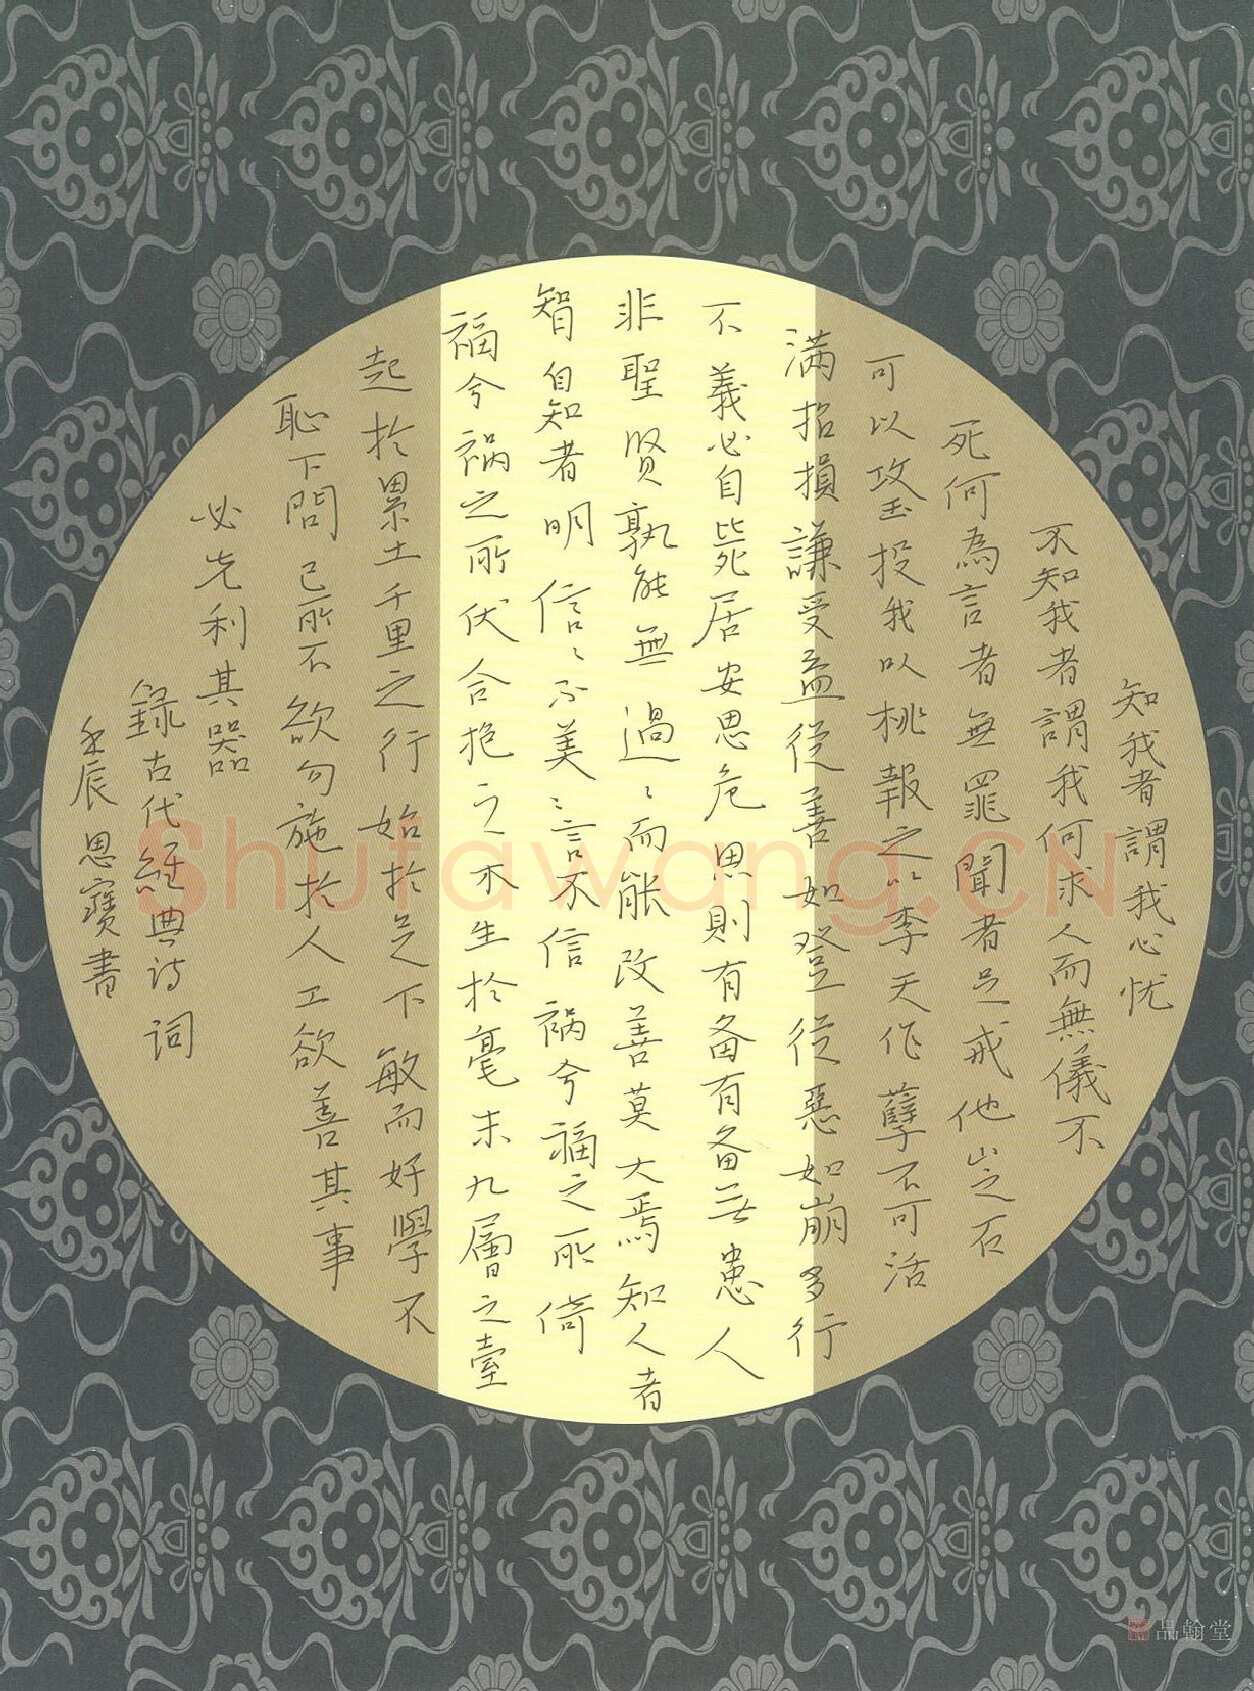 知我者謂我心忧
不知我者謂我何求人而無儀不
死何為言者無罪聞者足戒他山之石
可以攻玉投我以桃報之以李天作孽不可活
满招損謙受益從善如登從惡如崩多行
不義必自毙居安思危思則有备有备无患人
非聖贤孰能無過〻而能改善莫大焉知人者
智自知者明信〻不美〻言不信祸兮福之所倚
福兮祸之所伏合抱之木生於毫末九層之臺
起於累土千里之行始於足下敏而好學不
恥下問己所不欲勿施於人工欲善其事
必先利其器
錄古代經典诗词
壬辰思寶書
Shufawang.CN
品翰堂